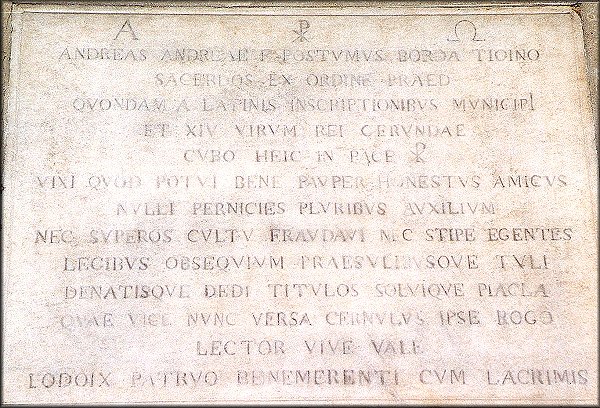 Α ☧ Ω
ANDREAS ANDREAE F POSTVMVS BORDA TICINO
SACERDOS EX ORDINE PRAED
QVONDAM A LATINIS INSCRIPTIONIBVS MVNICIPI
ET XIV VIRVM REI GERVNDAE
CVBO HEIC IN PACE ☧
VIXI QVOD POTVI BENE PAVPER HONESTVS AMICVS
NVLLI PERNICIES PLVRIBVS AVXILIVM
NEC SVPEROS CVLTV FRAVDAVI NEC STIPE EGENTES
LEGIBVS OBSEQVIVM PRAESVLIBVSQVE TVLI
DENATISQVE DEDI TITVLOS SOLVIQVE PIACLA
QVAE VICE NVNC VERSA CERNVLVS IPSE ROGO
LECTOR VIVE VALE
LODOIX PATRVO BENEMERENTI CVM LACRIMIS